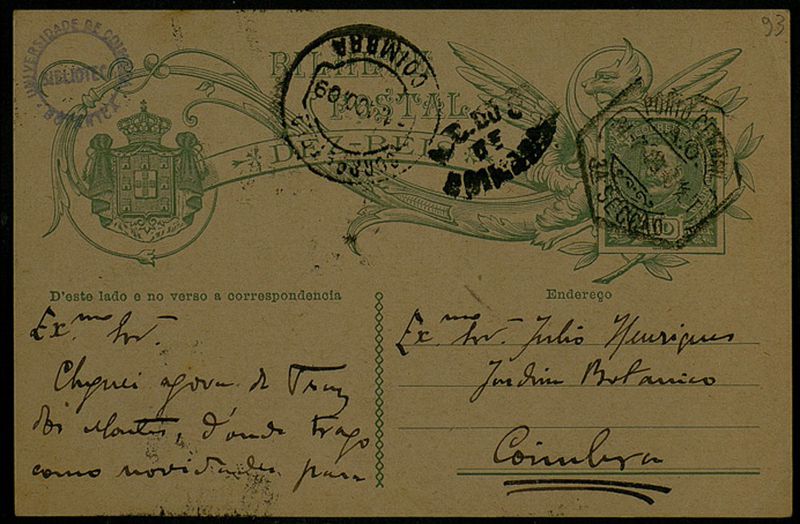 93
UNIVERSIDADE DE COIMBRA
BIBLIOTECA
BOTANICA
BILHETE
POSTAL
COIMBRA
PORTO CENTRAL
3A SECÇÃO
D'este lado e no verso a correspondencia
Endereço
Ex.mo Snr.
Cheguei agora de Traz
dos Montes, d'onde trago
como novidades para
Ex.mo Snr. Julio Henriques
Jardim Botanico
Coimbra